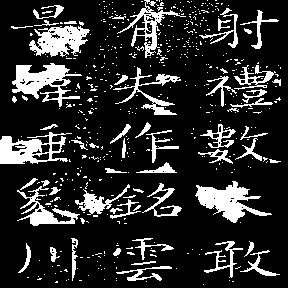 射禮數敢
有失作銘雲
景緯垂象川